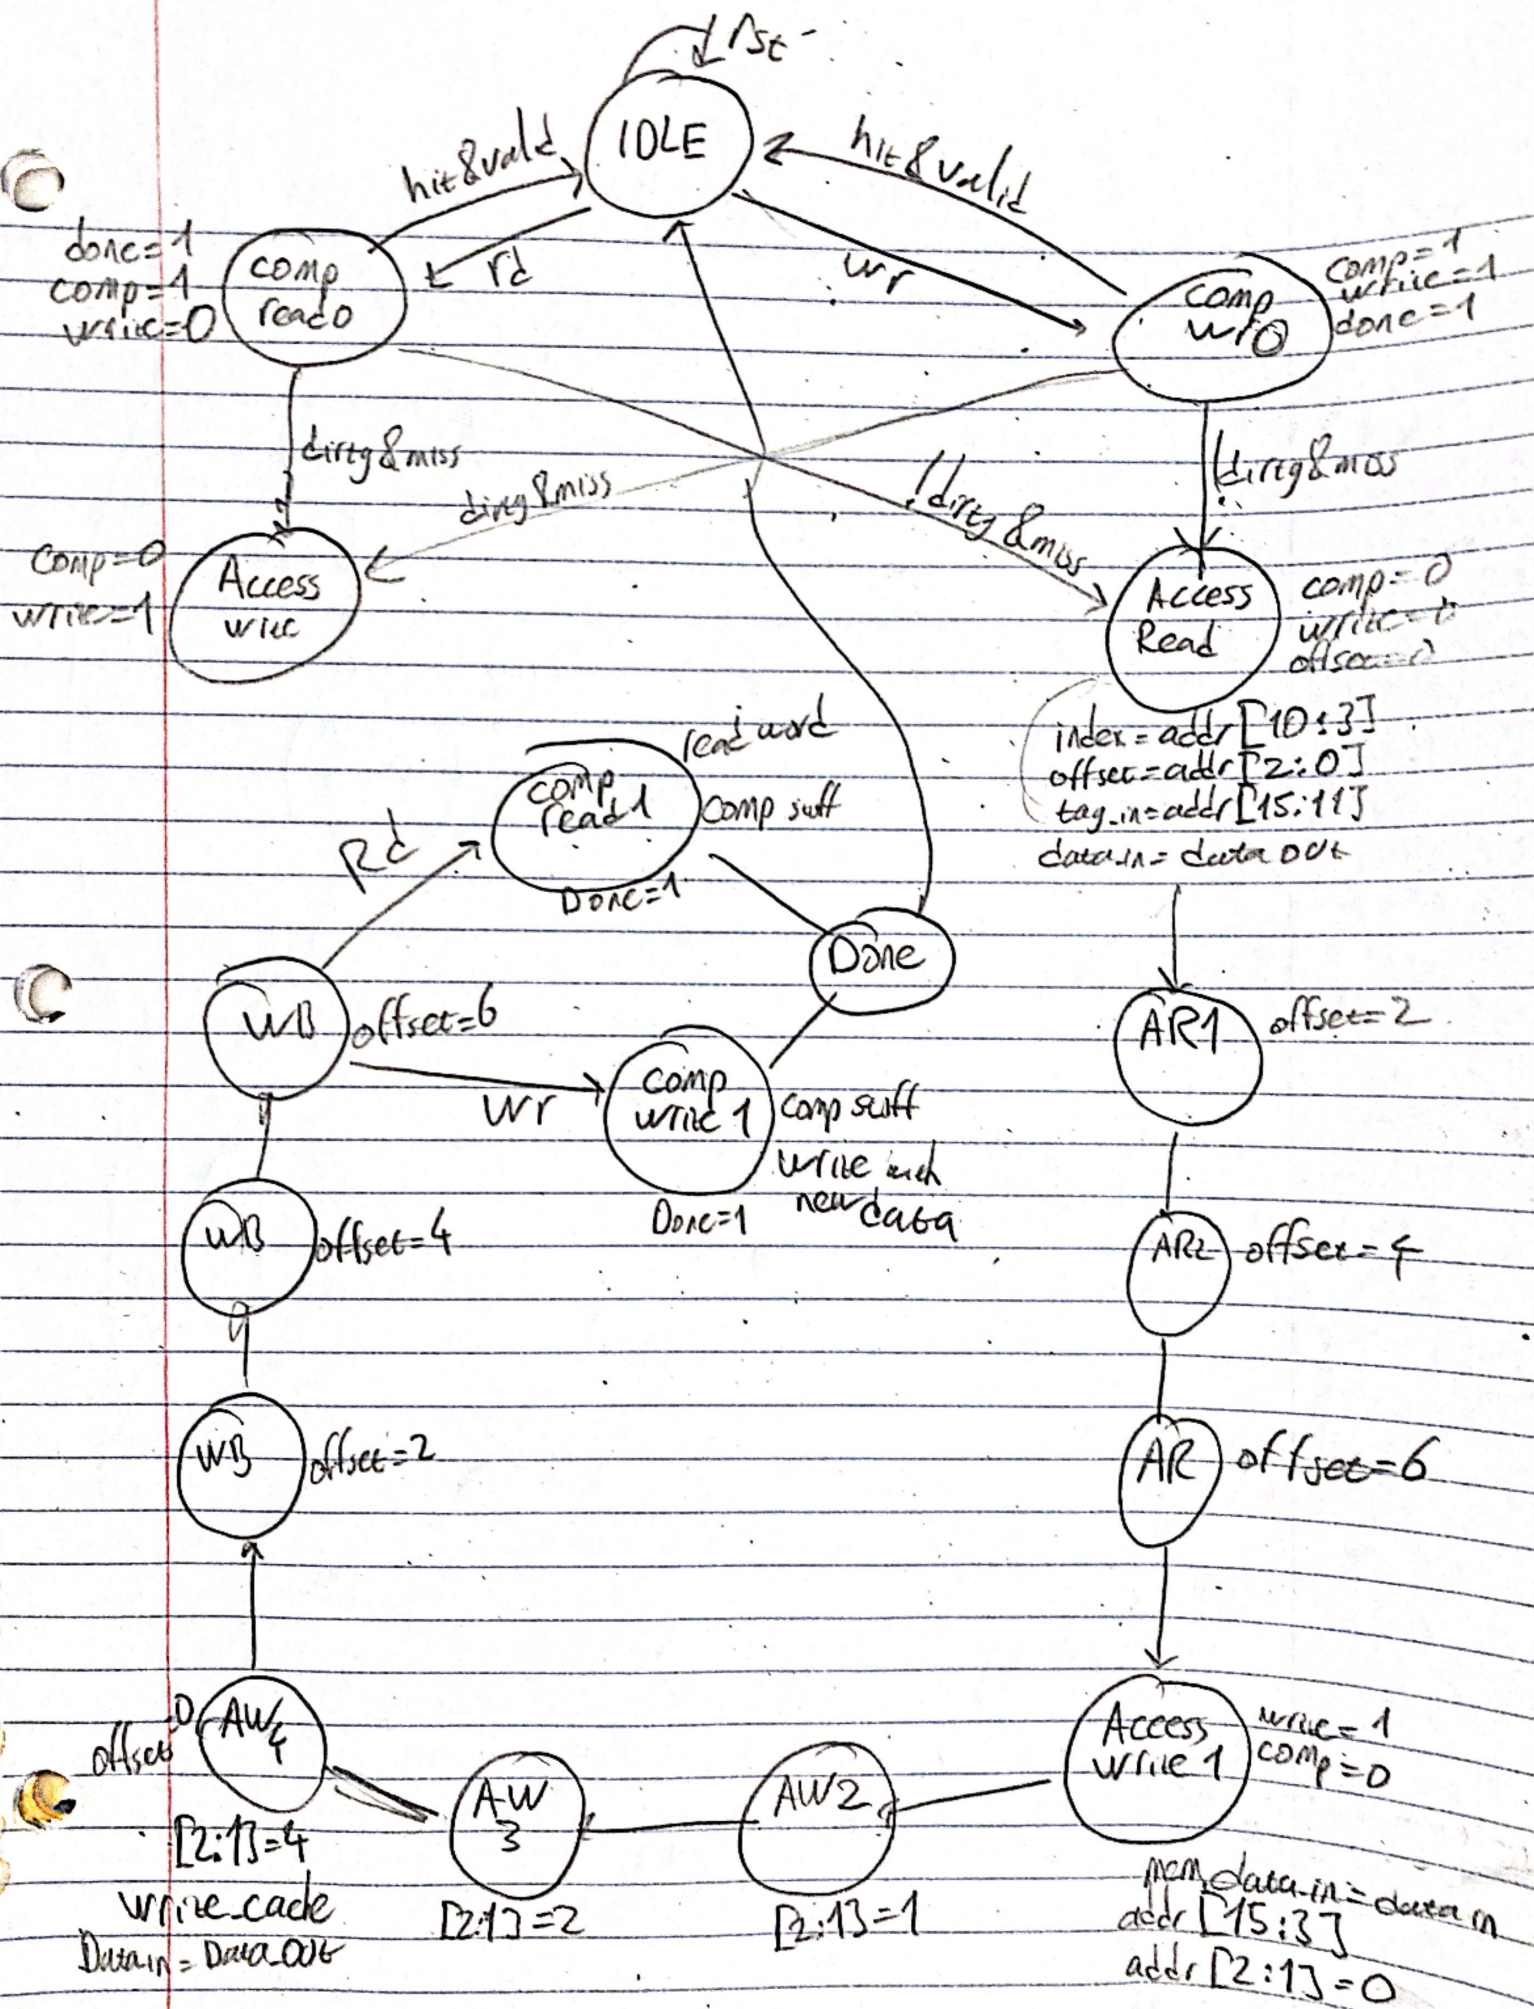 rst
IDLE
hit&valid
hit&valid
rd
wr
done=1
comp=1
write=0
comp
read0
comp
wr0
comp=1
write=1
done=1
dirty&miss
dirty&miss
!dirty&miss
!dirty&miss
comp=0
write=1
Access
write
Access
Read
comp=0
write=0
offset=0
index=addr[10:3]
offset=addr[2:0]
tag_in=addr[15:11]
data_in=data out
read word
comp
read1
comp suff
Done=1
Rd
Done
WB
offset=6
wr
comp
write 1
comp suff
write
new data
Done=1
AR1
offset=2
WB
offset=4
AR2
offset=4
WB
offset=2
AR
offset=6
offset 0
AW4
[2:1]=4
write_cache
Data in = Data_out
AW
3
[2:1]=2
AW2
[2:1]=1
Access
write 1
write=1
comp=0
mem data_in=data in
addr[15:3]
addr[2:1]=0